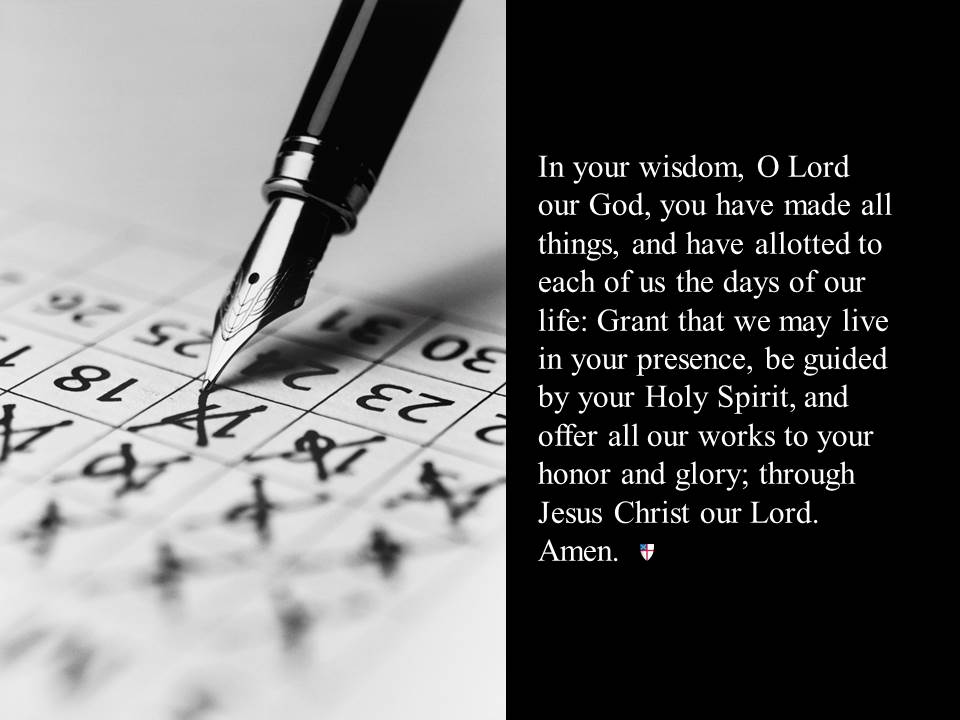 In your wisdom, O Lord
our God, you have made all
things, and have allotted to
each of us the days of our
life: Grant that we may live
in your presence, be guided
by your Holy Spirit, and
offer all our works to your
honor and glory; through
Jesus Christ our Lord.
Amen.
26 25 31 30
18 17 24 23
16